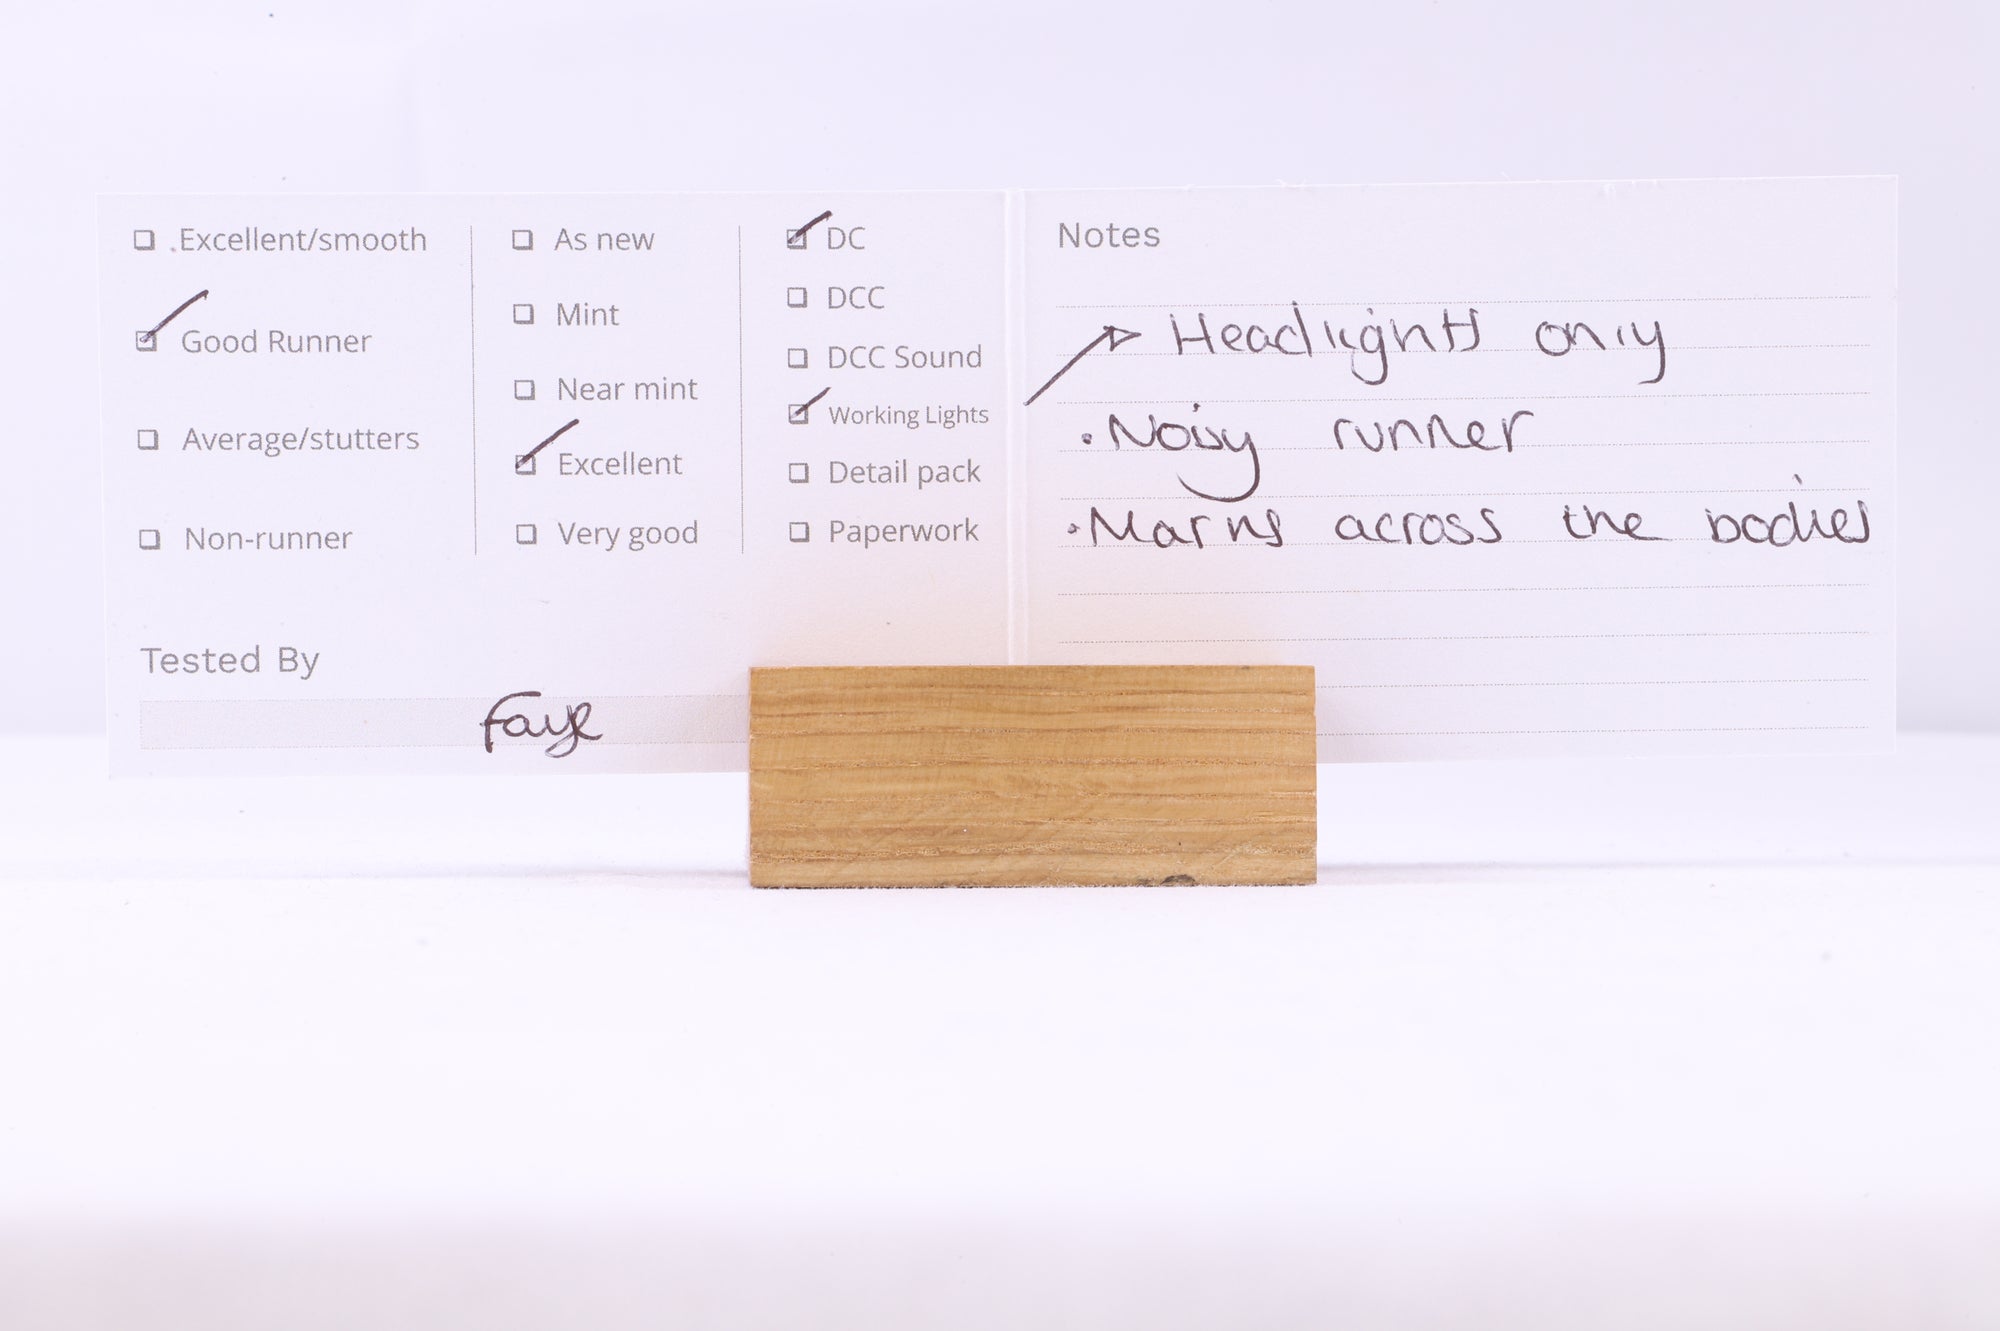 Excellent/smooth
Good Runner
Average/stutters
Non-runner
As new
Mint
Near mint
Excellent
Very good
DC
DCC
DCC Sound
Working Lights
Detail pack
Paperwork
Tested By
Faye
Notes
Headlights only
• Noisy runner
• Marks across the bodies